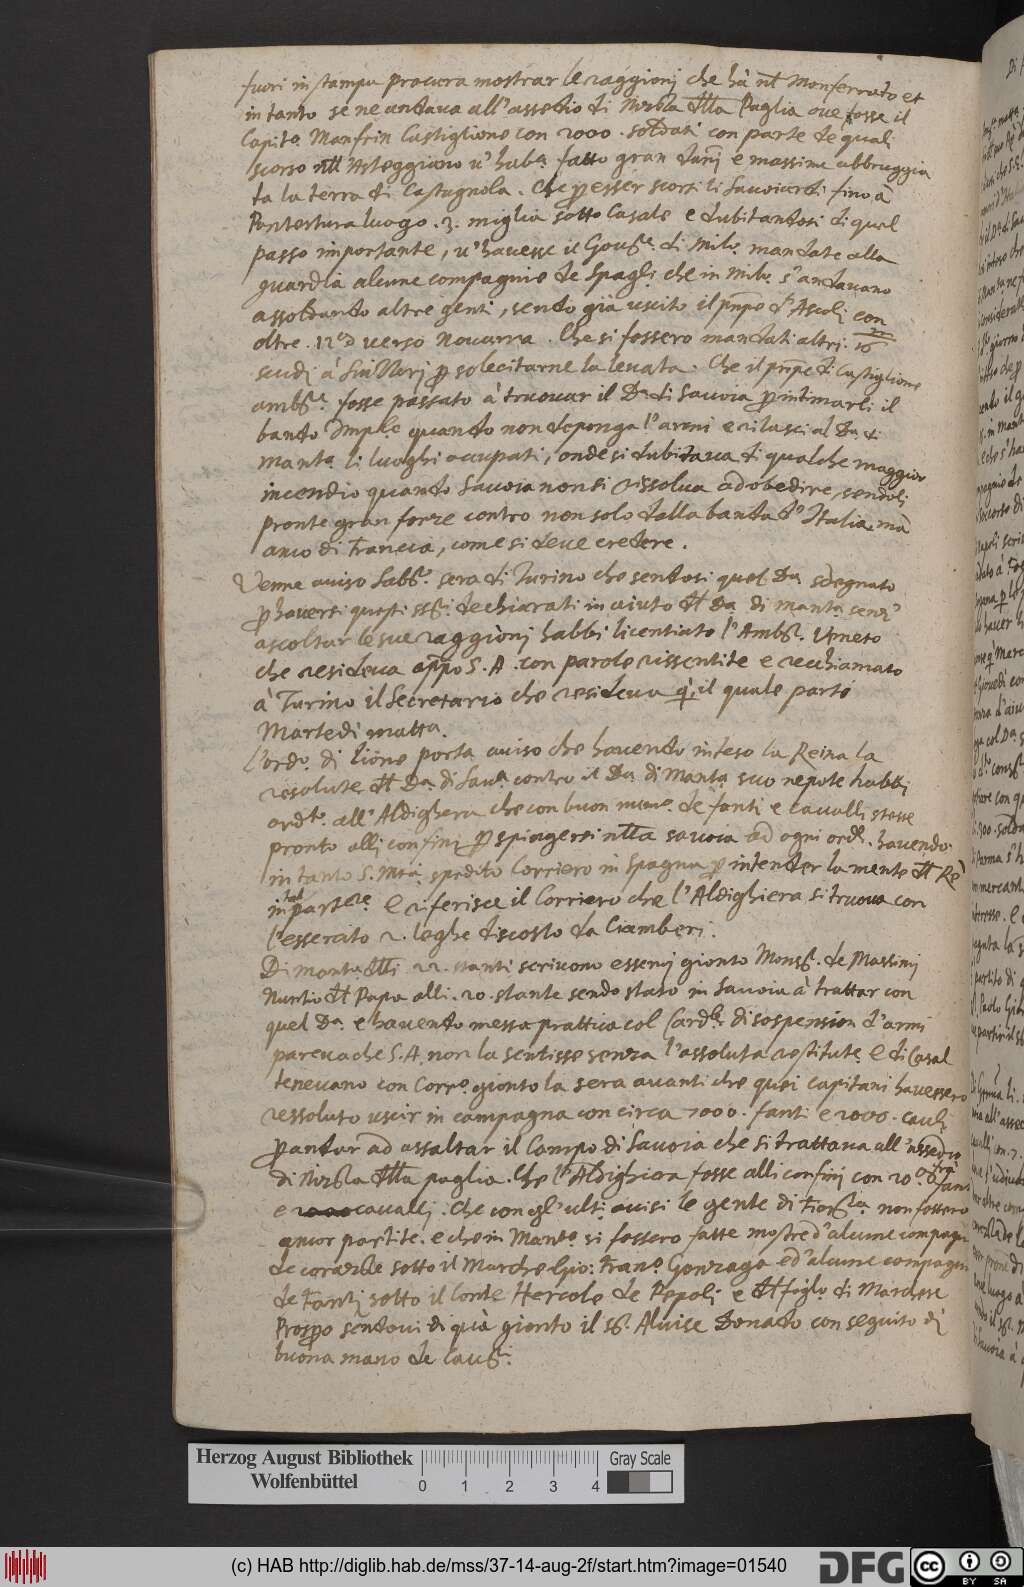 fuori in stampa procura mostrar le raggioni che hà nel Monferrato et
in tanto se ne andava all'assedio di Nizza della Paglia ove fosse il
Capito. Manfrin Castiglione con 2000. soldati con parte de quali
scorso nell'Asteggiano v'habe. fatto gran danj e massime abbruggia
ta la terra di Castagnola. Che per esser scorsi li Savoiardi fino à
Pontestura luogo .3. miglia sotto Casale e dubitandosi di quel
passo importante, v'havesse il Gover. di Milo. mandate alla
guardia alcune compagnie de Spagli. che in Milo. s'andavano
assoldando altre genti, sendo già uscito il prnpe d'Ascoli con
oltre .12 verso Novarra. Che si fossero mandati altri .16
scudi à Svizzeri per solecitarne la levata. Che il prnpe di Castiglione
ambr. fosse passato à truovar il Da. di Savoia per intimarli il
bando Imple. quando non deponga l'armi e rilasci al Da. di
Manta. li luoghi occupati, onde si dubitava di qualche maggior
incendio quando Savoia non si rissolva ad obedire, sendoli
pronte gran forze contro non solo dalla banda d'Italia, mà
anco di Francia, come si deve credere.
Venne aviso Sabbo. sera di Turino che sendosi quel Da. sdegnato
per haversi questi ssri. dechiarati in aiuto del Da. di Manta senz'
ascoltar le sue raggioni habbi licentiato l'Ambr. Veneto
che resideva appo S. A. con parole rissentite e recchiamato
à Turino il Secretario che resideva qui, il quale partì
Martedì matta.
l'ordo. di Lione porta aviso che havendo inteso la Reina la
resolute del Da. di Sava. contro il Da. di Manta suo nepote habbi
ordto. all'Aldighera che con buon numo. de fanti e cavalli stasse
pronto alli confini per spingersi nella Savoia ad ogni orde. havendo
in tanto S. Mtà. spedito Corriero in Spagna per intender la mente del Rè
in tal partre. E riferisce il Corriero che l'Aldighiera si truova con
l'essercito 2. leghe discosto da Ciamberi.
Di Manta delli .22. stanti scrivono esservj gionto Monsr. de Massimi
Nuntio del Papa alli .20. stante sendo stato in Savoia à trattar con
quel Da. e havendo messo prattica col Cardle. di sospension d'armi
pareva che S. A. non la sentisse senza l'assoluta restitute. E di Casal
tenevano con Corro. gionto la sera avanti che quei capitani havessero
ressoluto uscir in campagna con circa 7000. fanti e 2000. cavli.
per andar ad assaltar il Campo di Savoia che si trattava all'assedio
di Nizza della paglia. Che l'Aldighiera fosse alli confinj con 20. fanti
e cavallj. Che con gl'ulti. avisi le gente di Fiorza. non fossero
ancor partite. e che in Manto. si fossero fatte mostre d'alcune compagn
de corazze sotto il Marchese Gio: Frano. Gonzaga ed'alcune compagnie
de Fanti sotto il Conte Hercole de Pepoli e del figlo. di Marchese
Prospo sendovi di quà gionto il sr. Alvise Donado con seguito di
buona mano de Cavri.
Herzog August Bibliothek
Wolfenbüttel
0 1 2 3 4
Gray Scale
(c) HAB http://diglib.hab.de/mss/37-14-aug-2f/start.htm?image=01540
DFG
cc BY SA